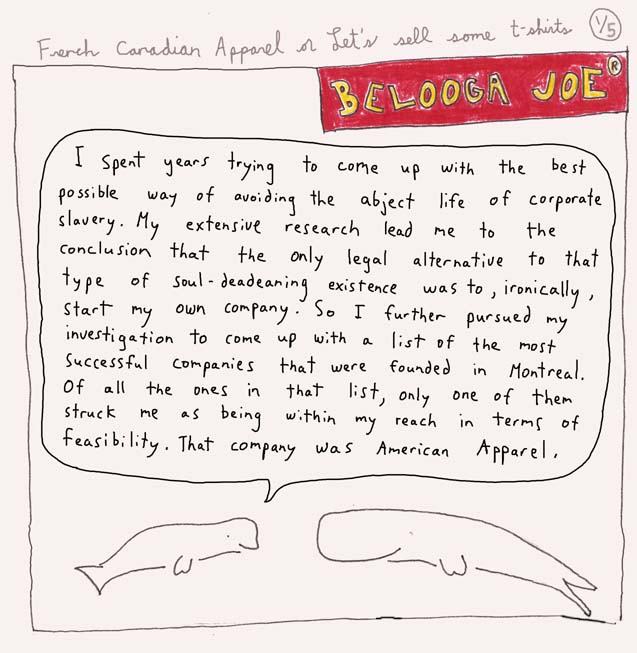 French Canadian Apparel or Let's sell some t-shirts 1/5
BELOOGA JOE ®
I spent years trying to come up with the best
possible way of avoiding the abject life of corporate
slavery. My extensive research lead me to the
conclusion that the only legal alternative to that
type of soul-deadeaning existence was to, ironically,
start my own company. So I further pursued my
investigation to come up with a list of the most
successful companies that were founded in Montreal.
Of all the ones in that list, only one of them
struck me as being within my reach in terms of
feasibility. That company was American Apparel.